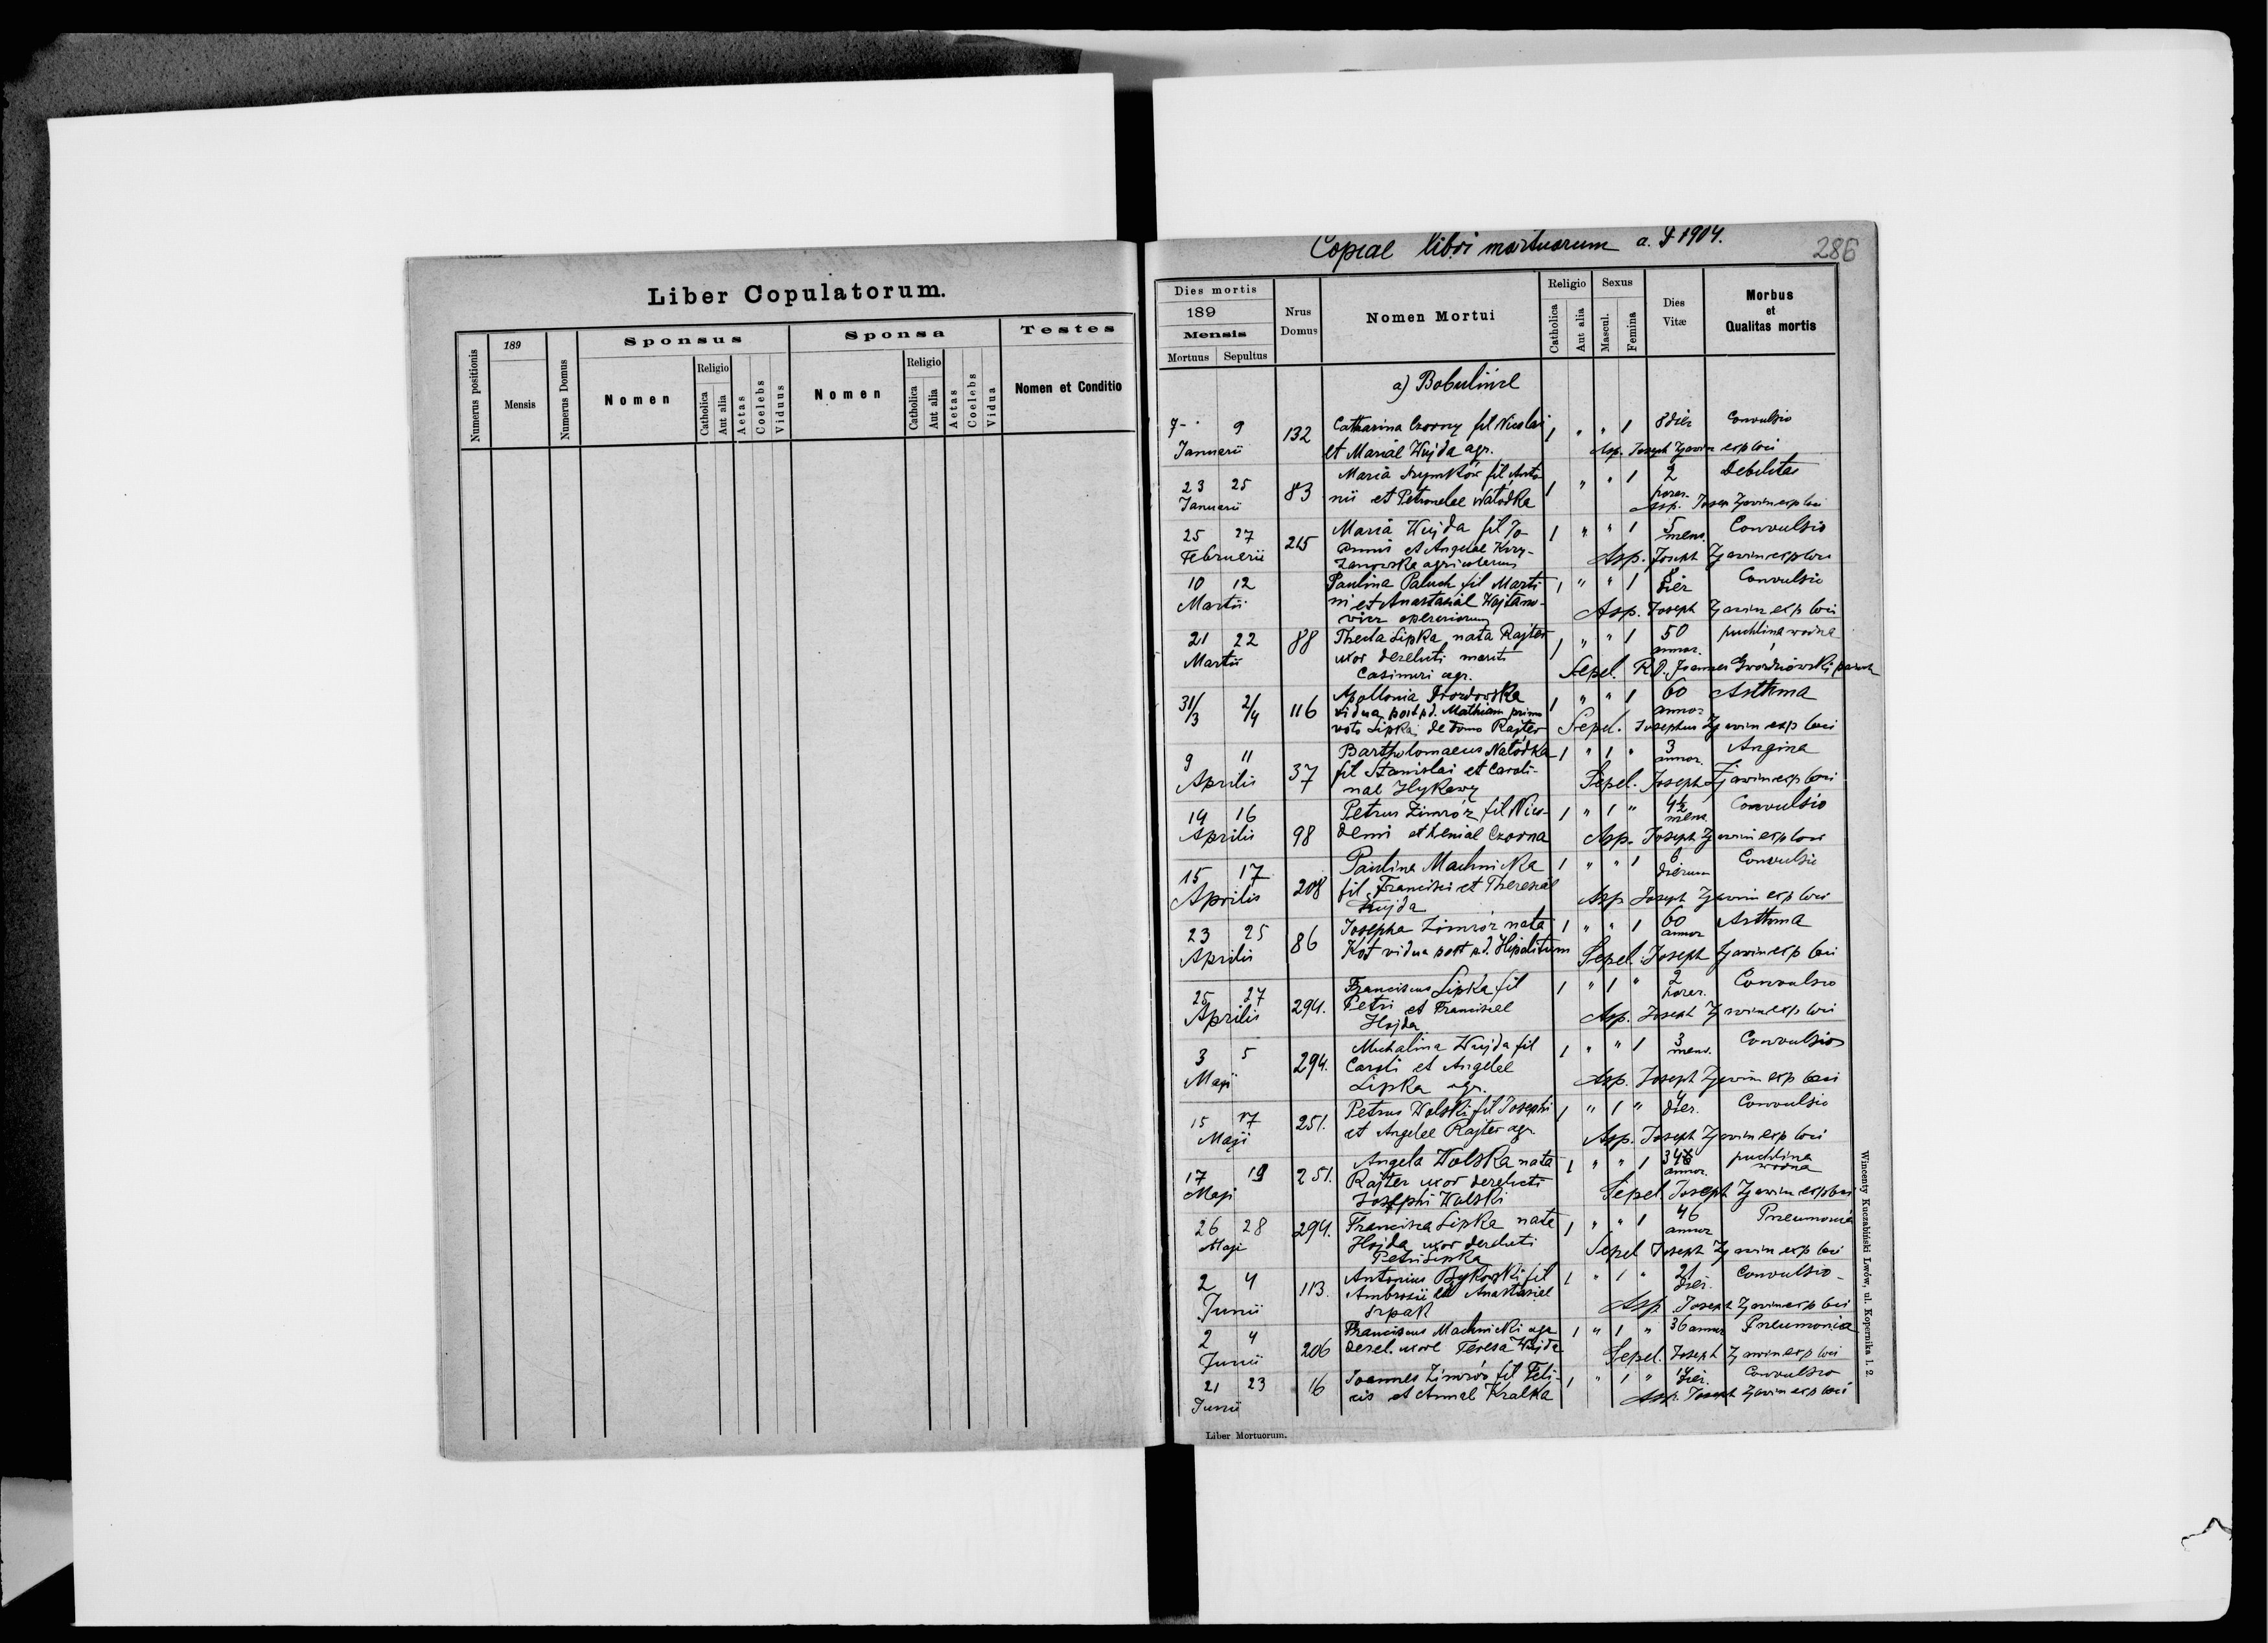 Liber Copulatorum.
Numerus positionis
189
Mensis
Numerus Domus
Sponsus
Nomen
Religio
Catholica
Aut alia
Aetas
Coelebs
Viduus
Sponsa
Nomen
Religio
Catholica
Aut alia
Aetas
Coelebs
Vidua
Testes
Nomen et Conditio
Copiae libri mortuorum a. D 1904.
286
Dies mortis
189
Mensis
Mortuus Sepultus
Nrus Domus
Nomen Mortui
Religio
Catholica
Aut alia
Sexus
Mascul.
Femina
Dies Vitæ
Morbus et Qualitas mortis
a) Bobulińce
7 9 132 Catharina Czorny fil Nicolai 1 " " 1 8 dier Convulsio
Januarii et Mariae Wujda agr. Asp. Joseph exp loci
23 25 83 Maria fil Anto- 1 " " 1 2 horar. Debilitas
Januarii nii et Petronelae Natodka Asp. Joseph exp loci
25 27 215 Maria Wujda fil Jo- 1 " " 1 5 mens. Convulsio
Februarii annis et Angelae Krzy-
zanowska agricolarum Asp. Joseph exp loci
10 12 Paulina Paluch fil Marti- 1 " " 1 8 dier Convulsio
Martii ni et Anastasiae Wojtano-
vicz operariorum Asp. Joseph exp loci
21 22 88 Thecla Lipka nata Rajter 1 " " 1 50 annor. puchlina wodna
Martii uxor derelicti mariti
Casimiri agr. Sepel. R.D. Joannes paroch
31/3 2/4 116 Apollonia Drozdowska 1 " " 1 60 annor Asthma
vidua post p.d. Mathiam primo
voto Lipka de domo Rajter Sepel. Josephus exp loci
9 11 37 Bartholomaeus Natodka 1 " 1 " 3 annor. Angina
Aprilis fil Stanislai et Caroli-
nae Hykawy Sepel. Joseph exp loci
14 16 98 Petrus Zimróz fil Nico- 1 " 1 " mens. Convulsio
Aprilis demi et Xeniae Czorna Asp. Joseph exp loci
15 17 208 Paulina Machnicka 1 " " 1 6 dierum Convulsio
Aprilis fil Francisci et Theresiae
Wujda Asp Joseph exp loci
23 25 86 Josepha Zimróz nata 1 " " 1 60 annor Asthma
Aprilis Kot vidua post p.d. Hipolitum Sepel. Joseph exp loci
25 27 294. Franciscus Lipka fil 1 " 1 " 2 horar. Convulsio
Aprilis Petri et Franciscae
Hojda Asp. Joseph exp loci
3 5 294. Michalina Wujda fil 1 " " 1 3 mens. Convulsio
Maji Caroli et Angelae
Lipka agr. Asp. Joseph exp loci
15 17 251. Petrus Wolski fil Josephi 1 " 1 " 4 dier. Convulsio
Maji et Angelae Rajter agr. Asp. Joseph exp loci
17 19 251. Angela Wolska nata 1 " " 1 annor. puchlina wodna
Maji Rajter uxor derelicti
Josephi Wolski Sepel Joseph exp loci
26 28 294. Francisca Lipka nata 1 " " 1 46 annor Pneumonia
Maji Hojda uxor derelicti
Petri Lipka Sepel Joseph exp loci
2 4 113. Antonius Bykowski fil 1 " 1 " 21 dier. Convulsio
Junii Ambrosii et Anastasiae
Szpak Asp. Joseph exp loci
2 4 206 Franciscus Machnicki agr 1 " 1 " 36 annor Pneumonia
Junii derel. uxore Teresa Wujda Sepel. Joseph exp loci
21 23 16 Joannes Zimróz fil Feli- 1 " 1 " 14 dier. Convulsio
Junii cis et Annae Kralka Asp. Joseph exp loci
Liber Mortuorum.
Wincenty Kuczabiński Lwów, ul. Kopernika l. 2